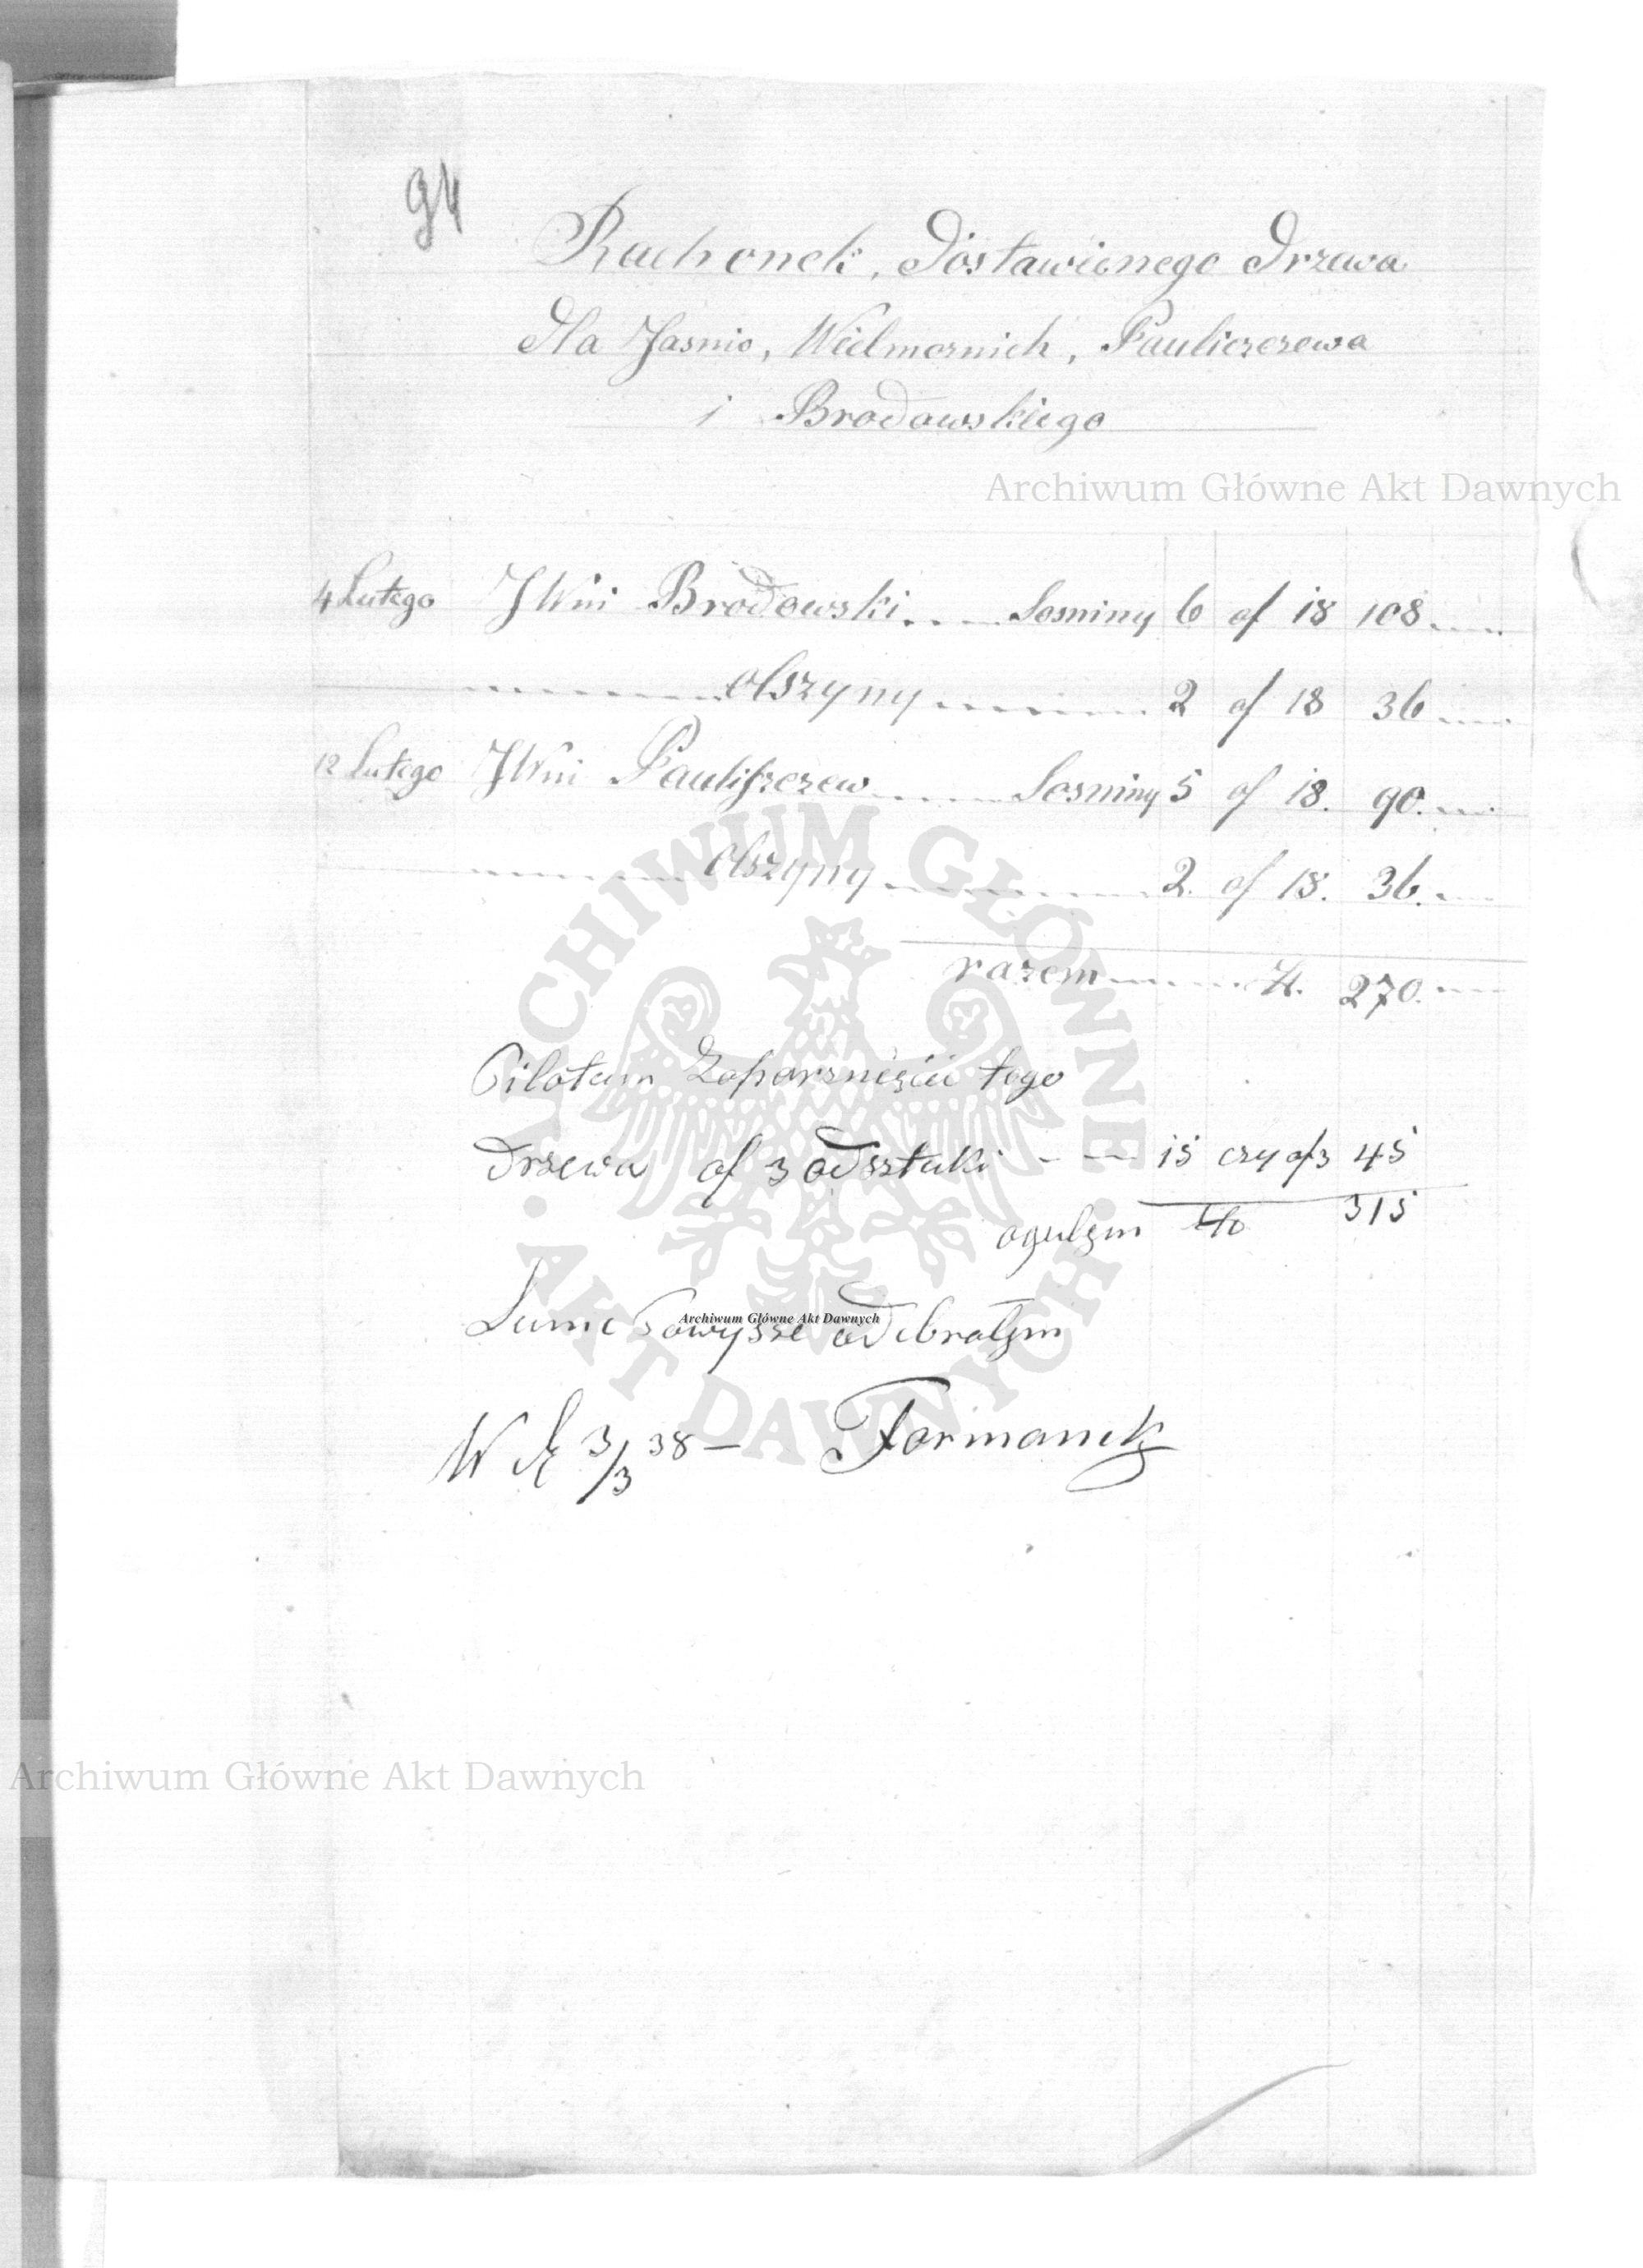 94
Rachonek, Dostawionego Drzewa
Dla Jasnio, Wielmoznich, Pauliczezewa
i Brodowskiego
Archiwum Główne Akt Dawnych
4 Lutego JWni Brodowski Sosniny 6 of 18 108
Olszyny 2 of 18 36
12 Lutego JWni Paulisczezew Sosniny 5 of 18. 90.
Olszyny 2. of 18. 36.
razem Zł. 270.
tego
Drzewa of 3 od sztuki - - - 15 czy of 3 45
ogulęm 315
Sume Powyssze odebrałęm
Archiwum Główne Akt Dawnych
W 3/3 38 - Formanek
Archiwum Główne Akt Dawnych
ARCHIWUM GŁÓWNE · AKT DAWNYCH ·